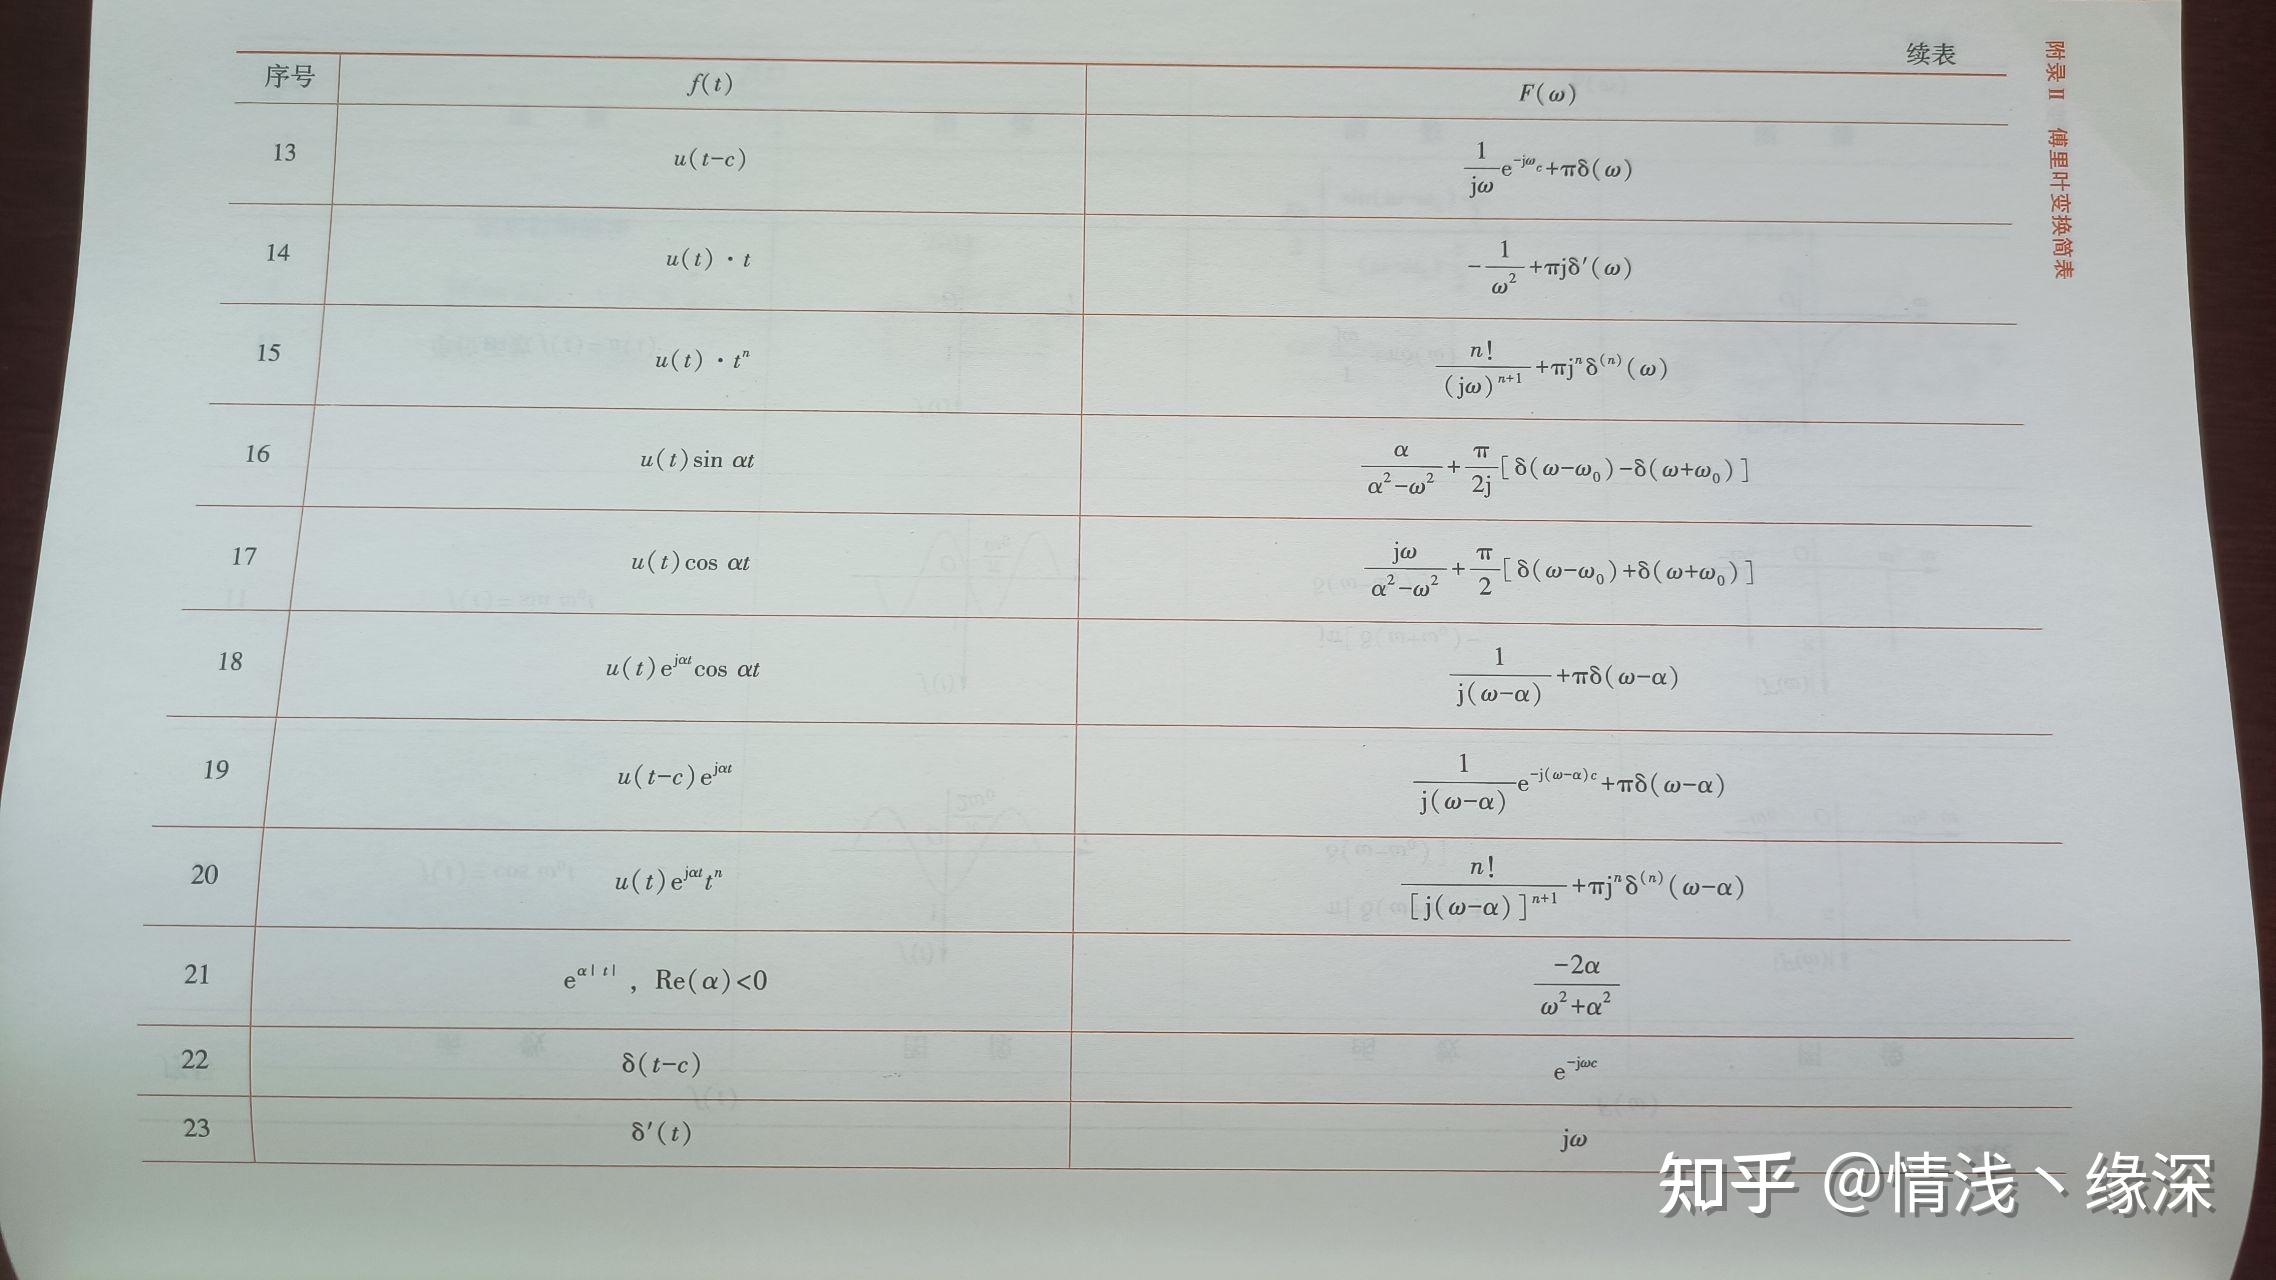 续表
附录Ⅱ 傅里叶变换简表
序号 f(t) F(ω)
13 u(t-c) \frac{1}{jω}e^{-jωc}+πδ(ω)
14 u(t)·t -\frac{1}{ω^2}+πjδ′(ω)
15 u(t)·t^n \frac{n!}{(jω)^{n+1}}+πj^nδ^{(n)}(ω)
16 u(t)sin αt \frac{α}{α^2-ω^2}+\frac{π}{2j}[δ(ω-ω_0)-δ(ω+ω_0)]
17 u(t)cos αt \frac{jω}{α^2-ω^2}+\frac{π}{2}[δ(ω-ω_0)+δ(ω+ω_0)]
18 u(t)e^{jαt}cos αt \frac{1}{j(ω-α)}+πδ(ω-α)
19 u(t-c)e^{jαt} \frac{1}{j(ω-α)}e^{-j(ω-α)c}+πδ(ω-α)
20 u(t)e^{jαt}t^n \frac{n!}{[j(ω-α)]^{n+1}}+πj^nδ^{(n)}(ω-α)
21 e^{α|t|}, Re(α)<0 \frac{-2α}{ω^2+α^2}
22 δ(t-c) e^{-jωc}
23 δ′(t) jω
知乎 @情浅丶缘深